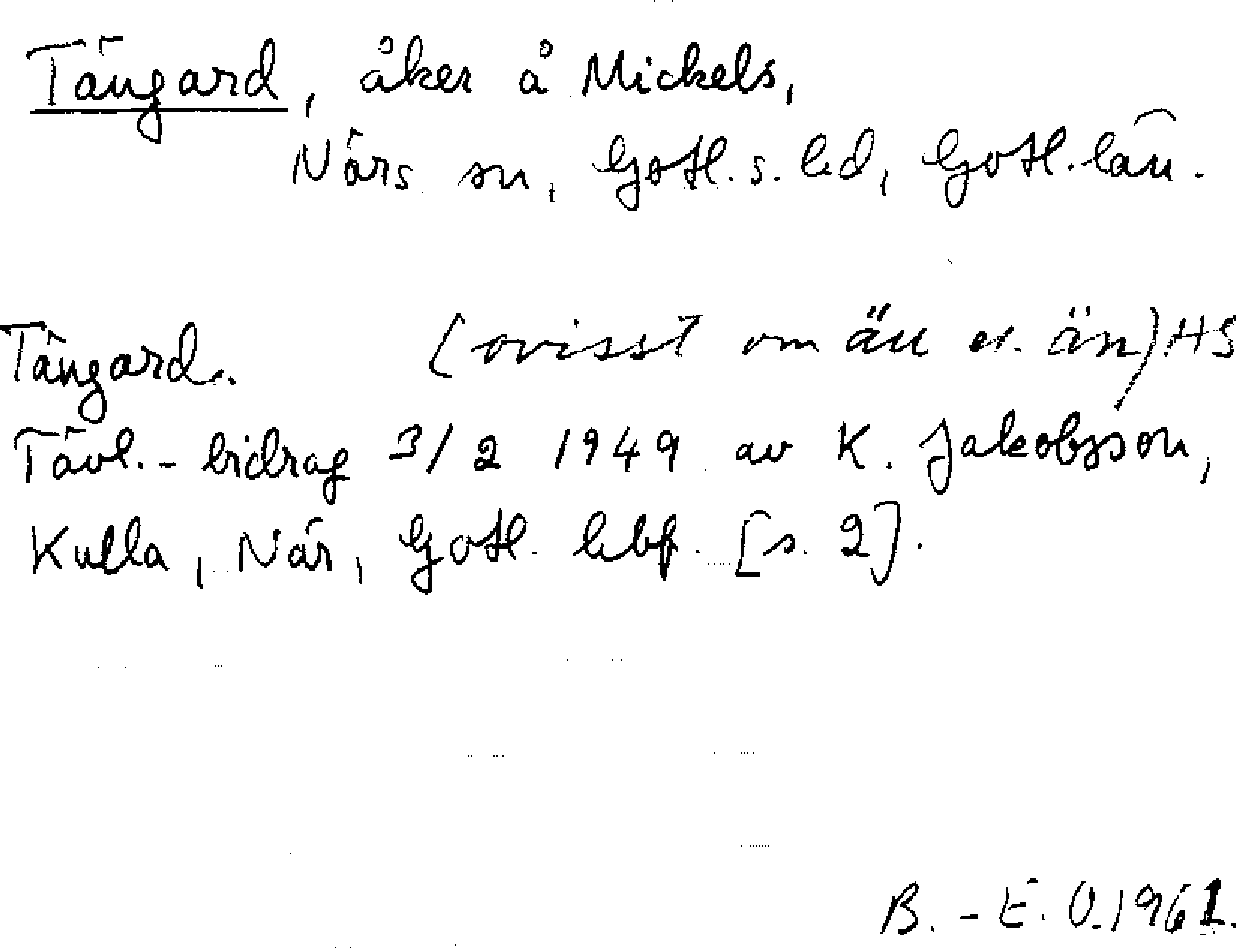 Tängard, åker å Mickels,
Närs sn, Gotl. s. hd, Gotl. län.
Tängard. (ovisst om äu el. än) HS
Tävl.-bidrag 3/2 1949 av K. Jakobsson,
Kulla, När, Gotl. hbf. [s. 2].
B.-E. O. 1961.